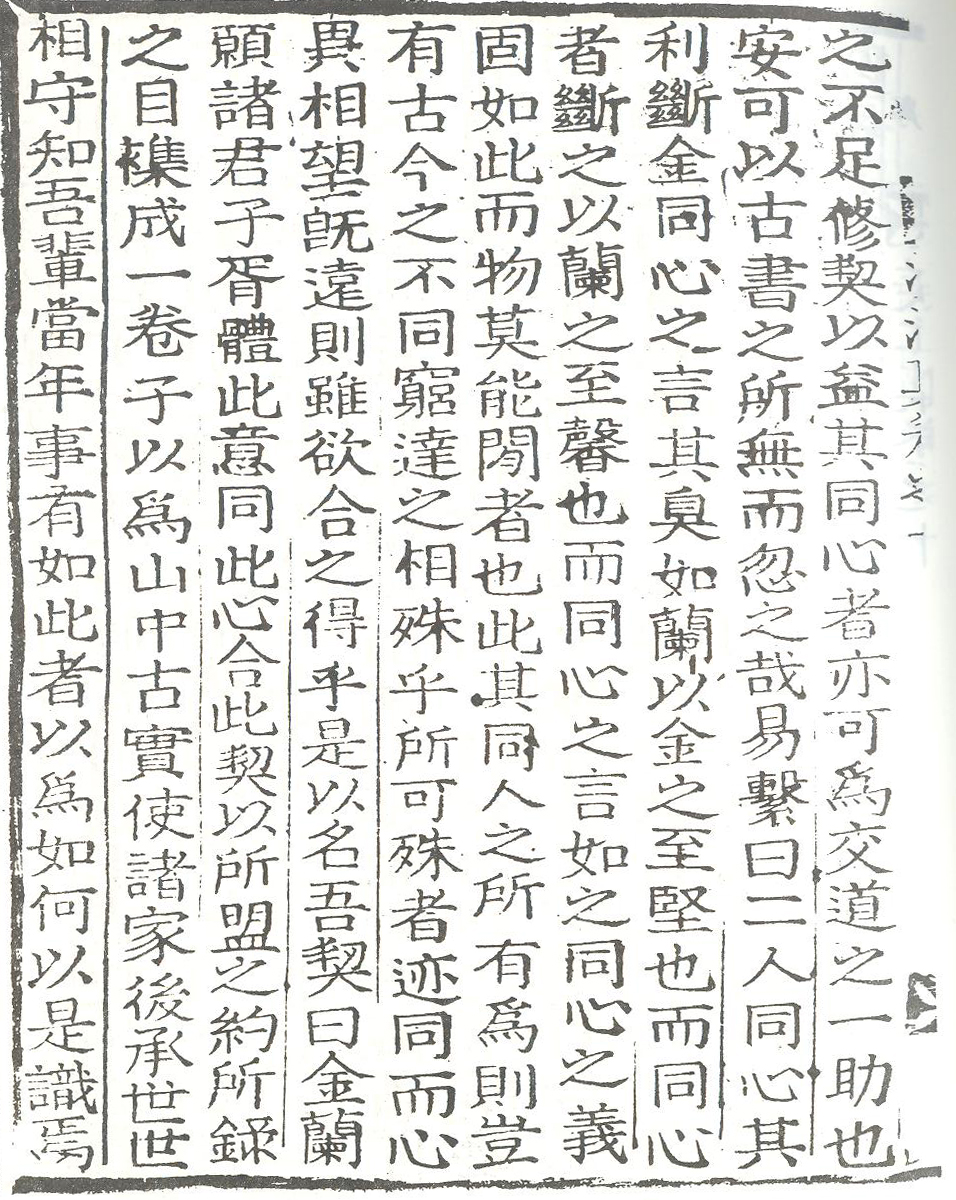 之不足修契以益其同心者亦可爲交道之一助也
安可以古書之所無而忽之哉易繫曰二人同心其
利斷金同心之言其臭如蘭以金之至堅也而同心
者斷之以蘭之至馨也而同心之言如之同心之義
固如此而物莫能間者也此其同人之所有爲則豈
有古今之不同窮達之相殊乎所可殊者迹同而心
異相望旣遠則雖欲合之得乎是以名吾契曰金蘭
願諸君子胥體此意同此心合此契以所盟之約所錄
之目襍成一卷子以爲山中古實使諸家後承世世
相守知吾輩當年事有如此者以爲如何以是識焉